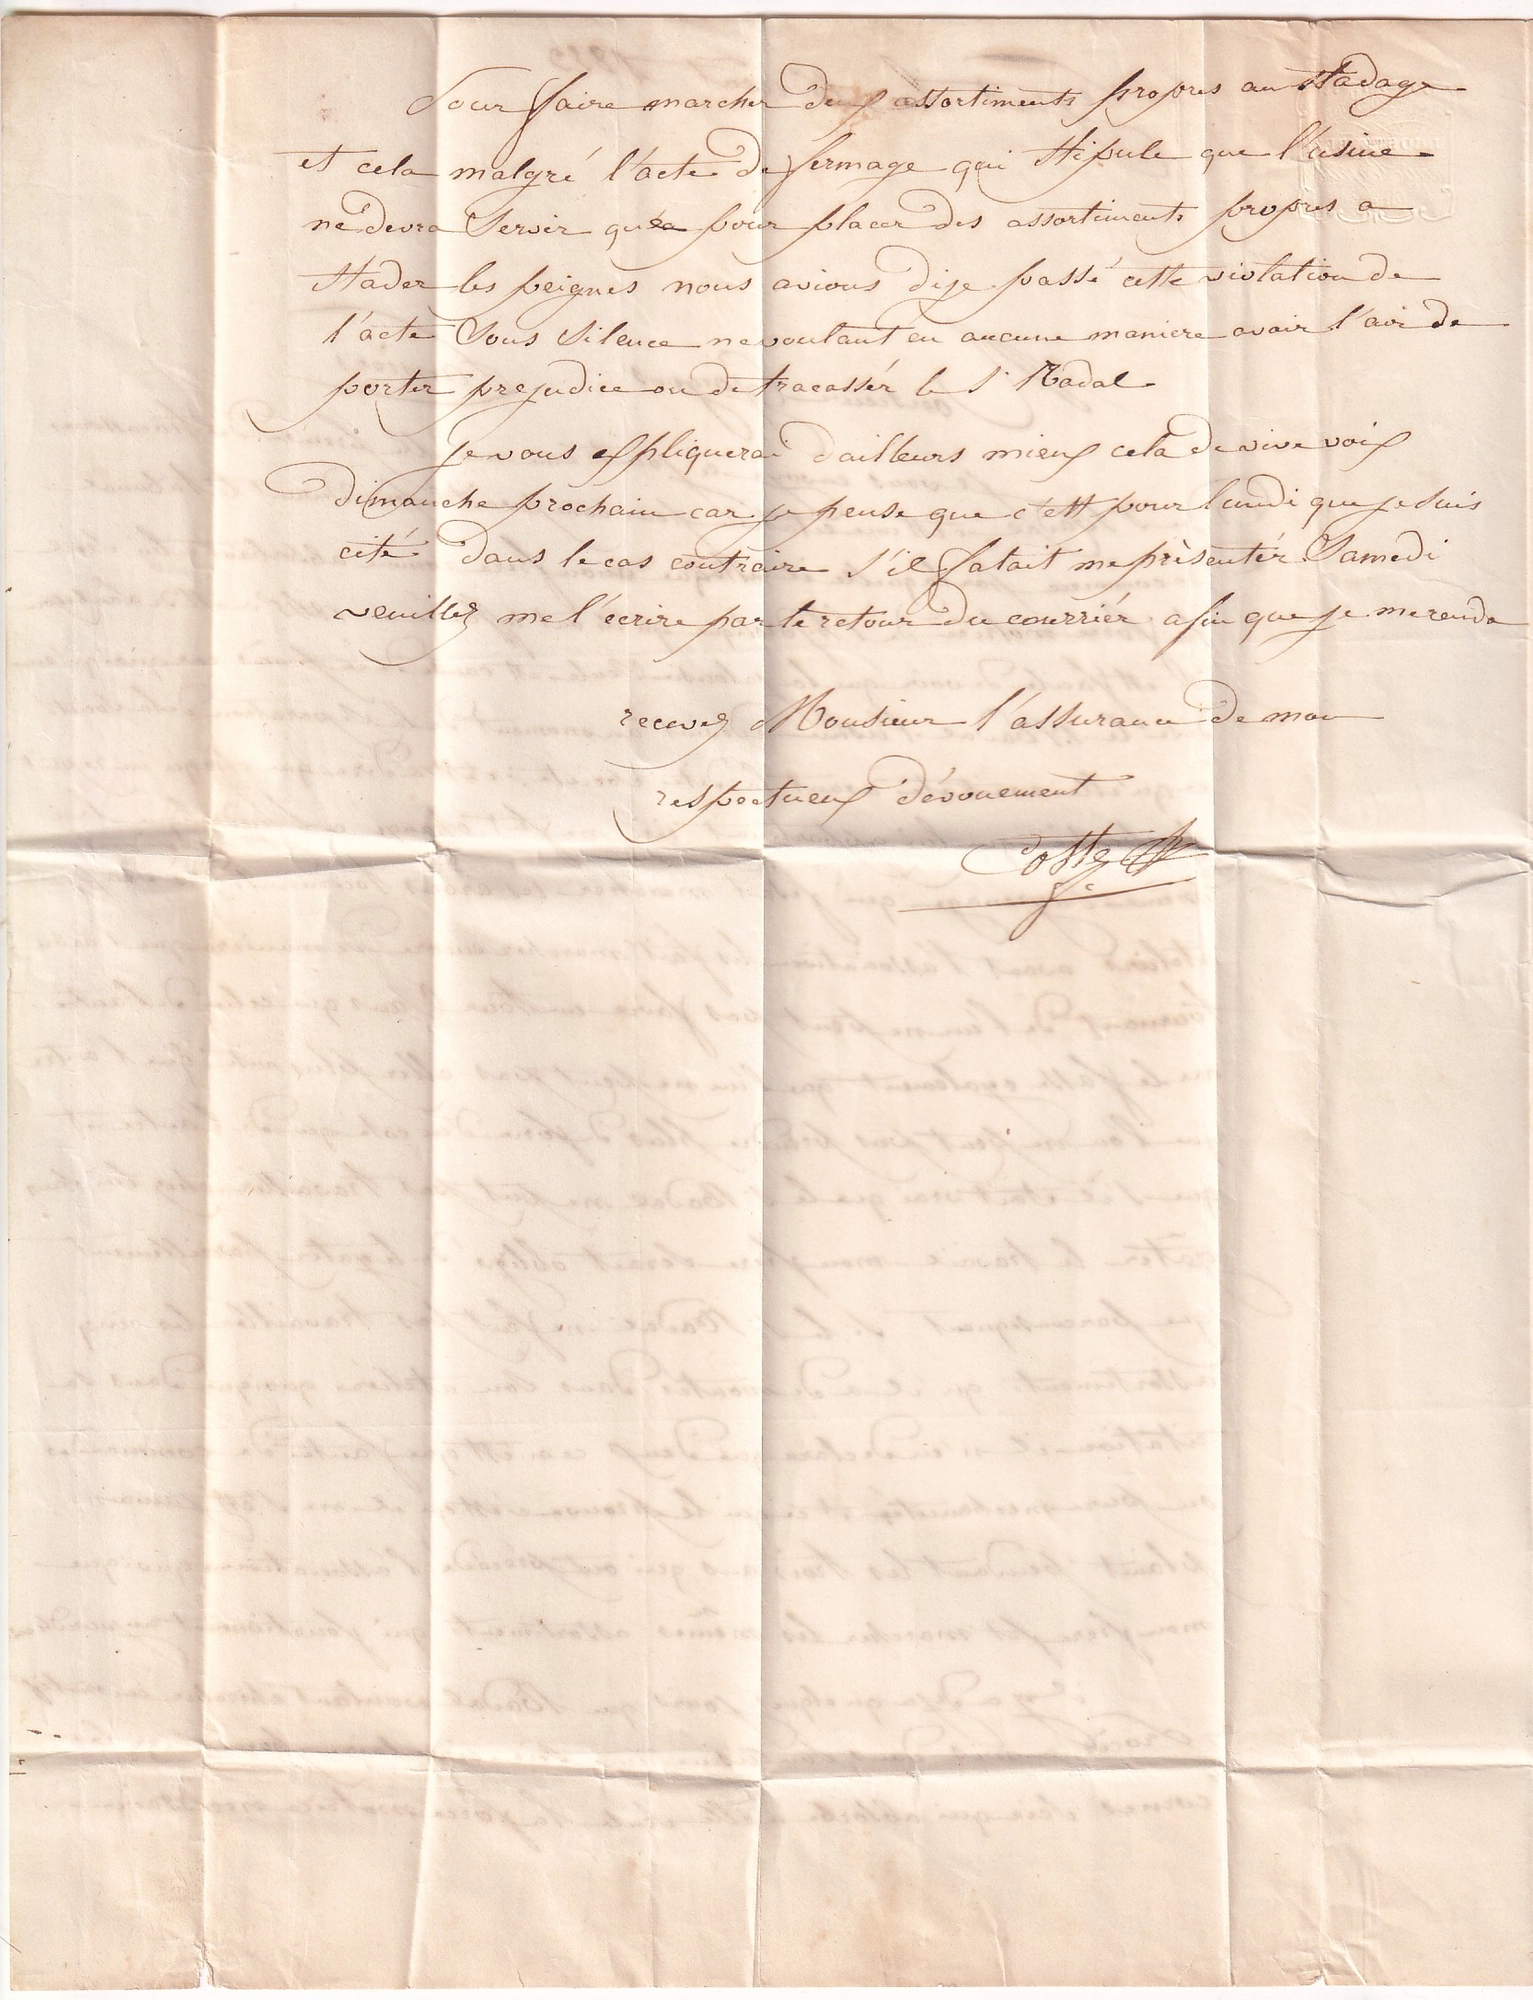 pour faire marcher deux assortiments propres au Stadage
et cela malgré l'acte de fermage qui stipule que l'usine
ne devra servir que pour placer des assortiments propres a
stader les peignes nous avions deja passé cette violation de
l'acte sous silence ne voulant en aucune maniere avoir l'air de
porter prejudice ou de tracassér le Sr Radal
je vous expliquerai d'ailleurs mieux cela de vive voix
dimanche prochain car je pense que c'est pour lundi que je suis
cité dans le cas contraire s'il falait me présentér Samedi
veuillez me l'écrire par le retour du courriér afin que je me rende
recevez Monsieur l'assurance de mon
respectueux dévouement
Coste